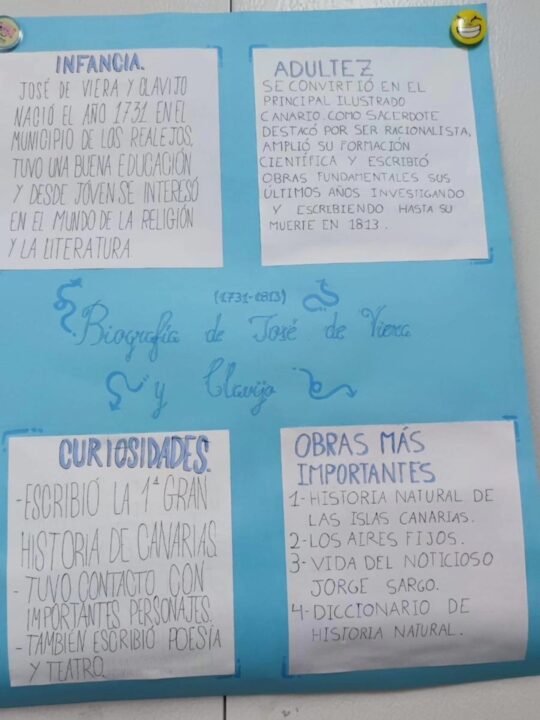 INFANCIA.
JOSÉ DE VIERA Y CLAVIJO
NACIÓ EL AÑO 1731 EN EL
MUNICIPIO DE LOS REALEJOS,
TUVO UNA BUENA EDUCACIÓN
Y DESDE JÓVEN SE INTERESÓ
EN EL MUNDO DE LA RELIGIÓN
Y LA LITERATURA.
ADULTEZ
SE CONVIRTIÓ EN EL
PRINCIPAL ILUSTRADO
CANARIO. COMO SACERDOTE
DESTACÓ POR SER RACIONALISTA,
AMPLIÓ SU FORMACIÓN
CIENTÍFICA Y ESCRIBIÓ
OBRAS FUNDAMENTALES SUS
ÚLTIMOS AÑOS INVESTIGANDO
Y ESCRIBIENDO HASTA SU
MUERTE EN 1813.
(1731-1813)
Biografía de José de Viera
y Clavijo
CURIOSIDADES.
-ESCRIBIÓ LA 1ª GRAN
HISTORIA DE CANARIAS.
- TUVO CONTACTO CON
IMPORTANTES PERSONAJES.
-TAMBIEN ESCRIBIÓ POESÍA
Y TEATRO.
OBRAS MÁS
IMPORTANTES
1-HISTORIA NATURAL DE
LAS ISLAS CANARIAS.
2-LOS AIRES FIJOS.
3- VIDA DEL NOTICIOSO
JORGE SARGO.
4-DICCIONARIO DE
HISTORIA NATURAL.